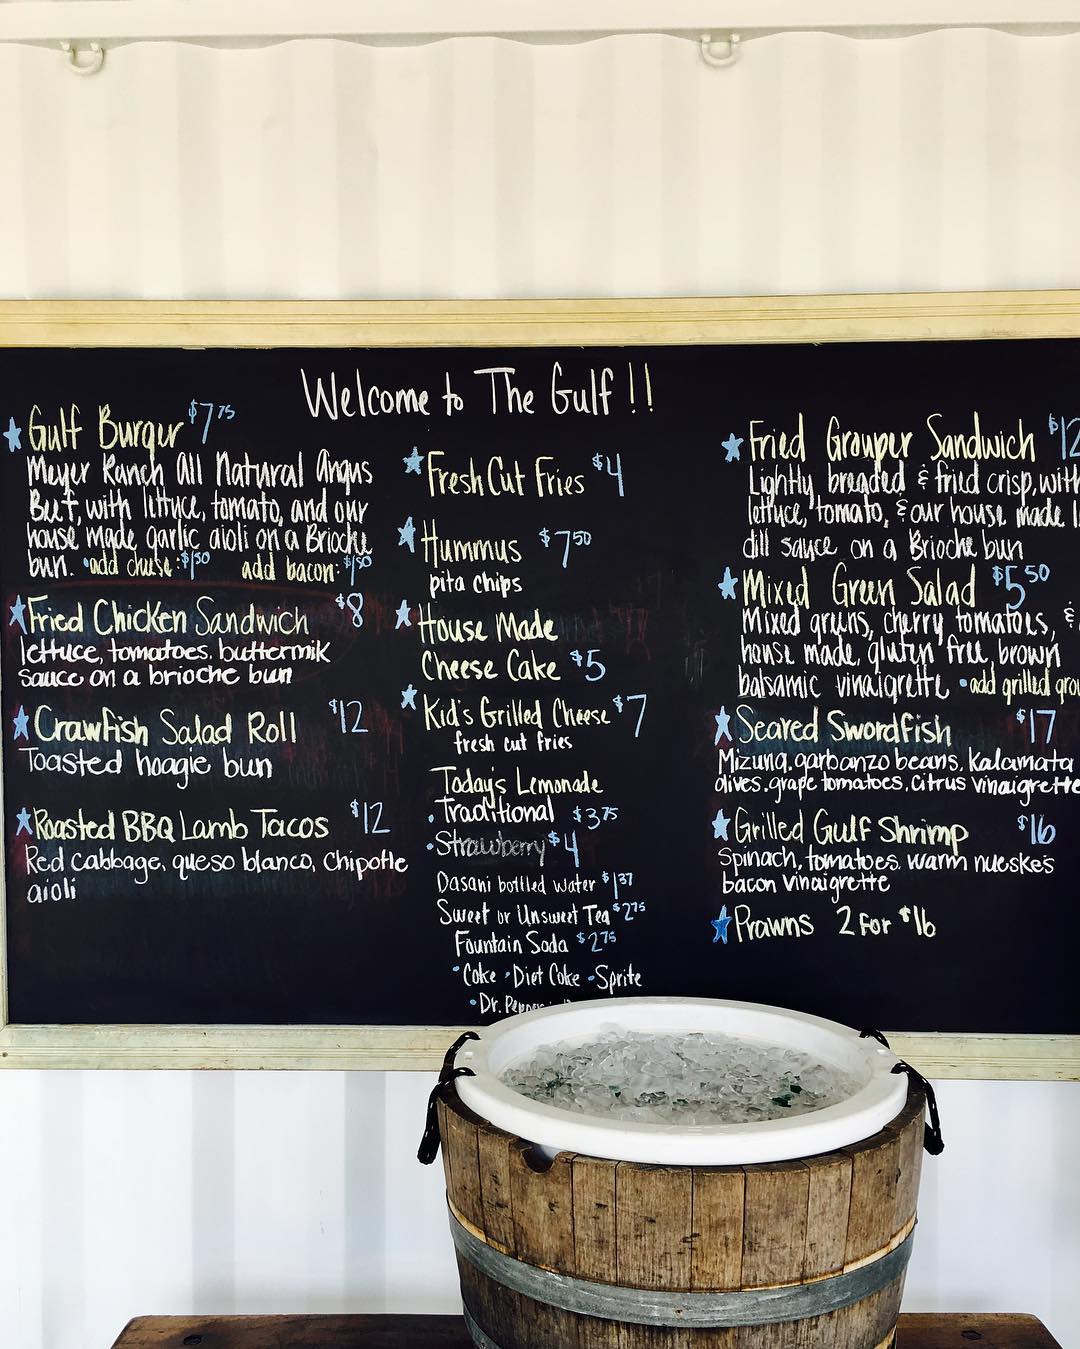 Welcome to The Gulf !!
Gulf Burger $7.75
Meyer Ranch All Natural Angus
Beef, with lettuce, tomato, and our
house made garlic aioli on a Brioche
bun. • add cheese: $1.50 add bacon: $1.50
Fried Chicken Sandwich $8
lettuce, tomatoes, buttermik
sauce on a brioche bun
Crawfish Salad Roll $12
Toasted hoagie bun
Roasted BBQ Lamb Tacos $12
Red cabbage, queso blanco, Chipotle
aioli
Fresh Cut Fries $4
Hummus $7.50
pita chips
House Made
Cheese Cake $5
Kid's Grilled Cheese $7
fresh cut fries
Today's Lemonade
• Traditional $3.75
• Strawberry $4
Dasani bottled water $1.37
Sweet or Unsweet Tea $2.75
Fountain Soda $2.75
• Coke • Diet Coke • Sprite
• Dr. Pepper
Fried Grouper Sandwich $12
Lightly breaded & fried crisp, with
lettuce, tomato, & our house made
dill sauce on a Brioche bun
Mixed Green Salad $5.50
Mixed greens, cherry tomatoes, &
house made, gluten free, brown
balsamic vinaigrette • add grilled
Seared Swordfish $17
Mizuna, garbanzo beans, Kalamata
olives, grape tomatoes, Citrus vinaigrette
Grilled Gulf Shrimp $16
Spinach, tomatoes, warm nueske's
bacon vinaigrette
Prawns 2 for $16